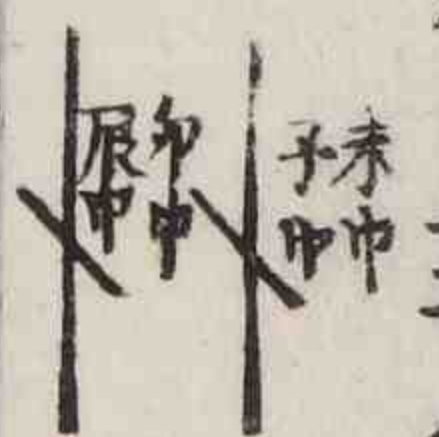 未巾
子巾
卯中
辰中